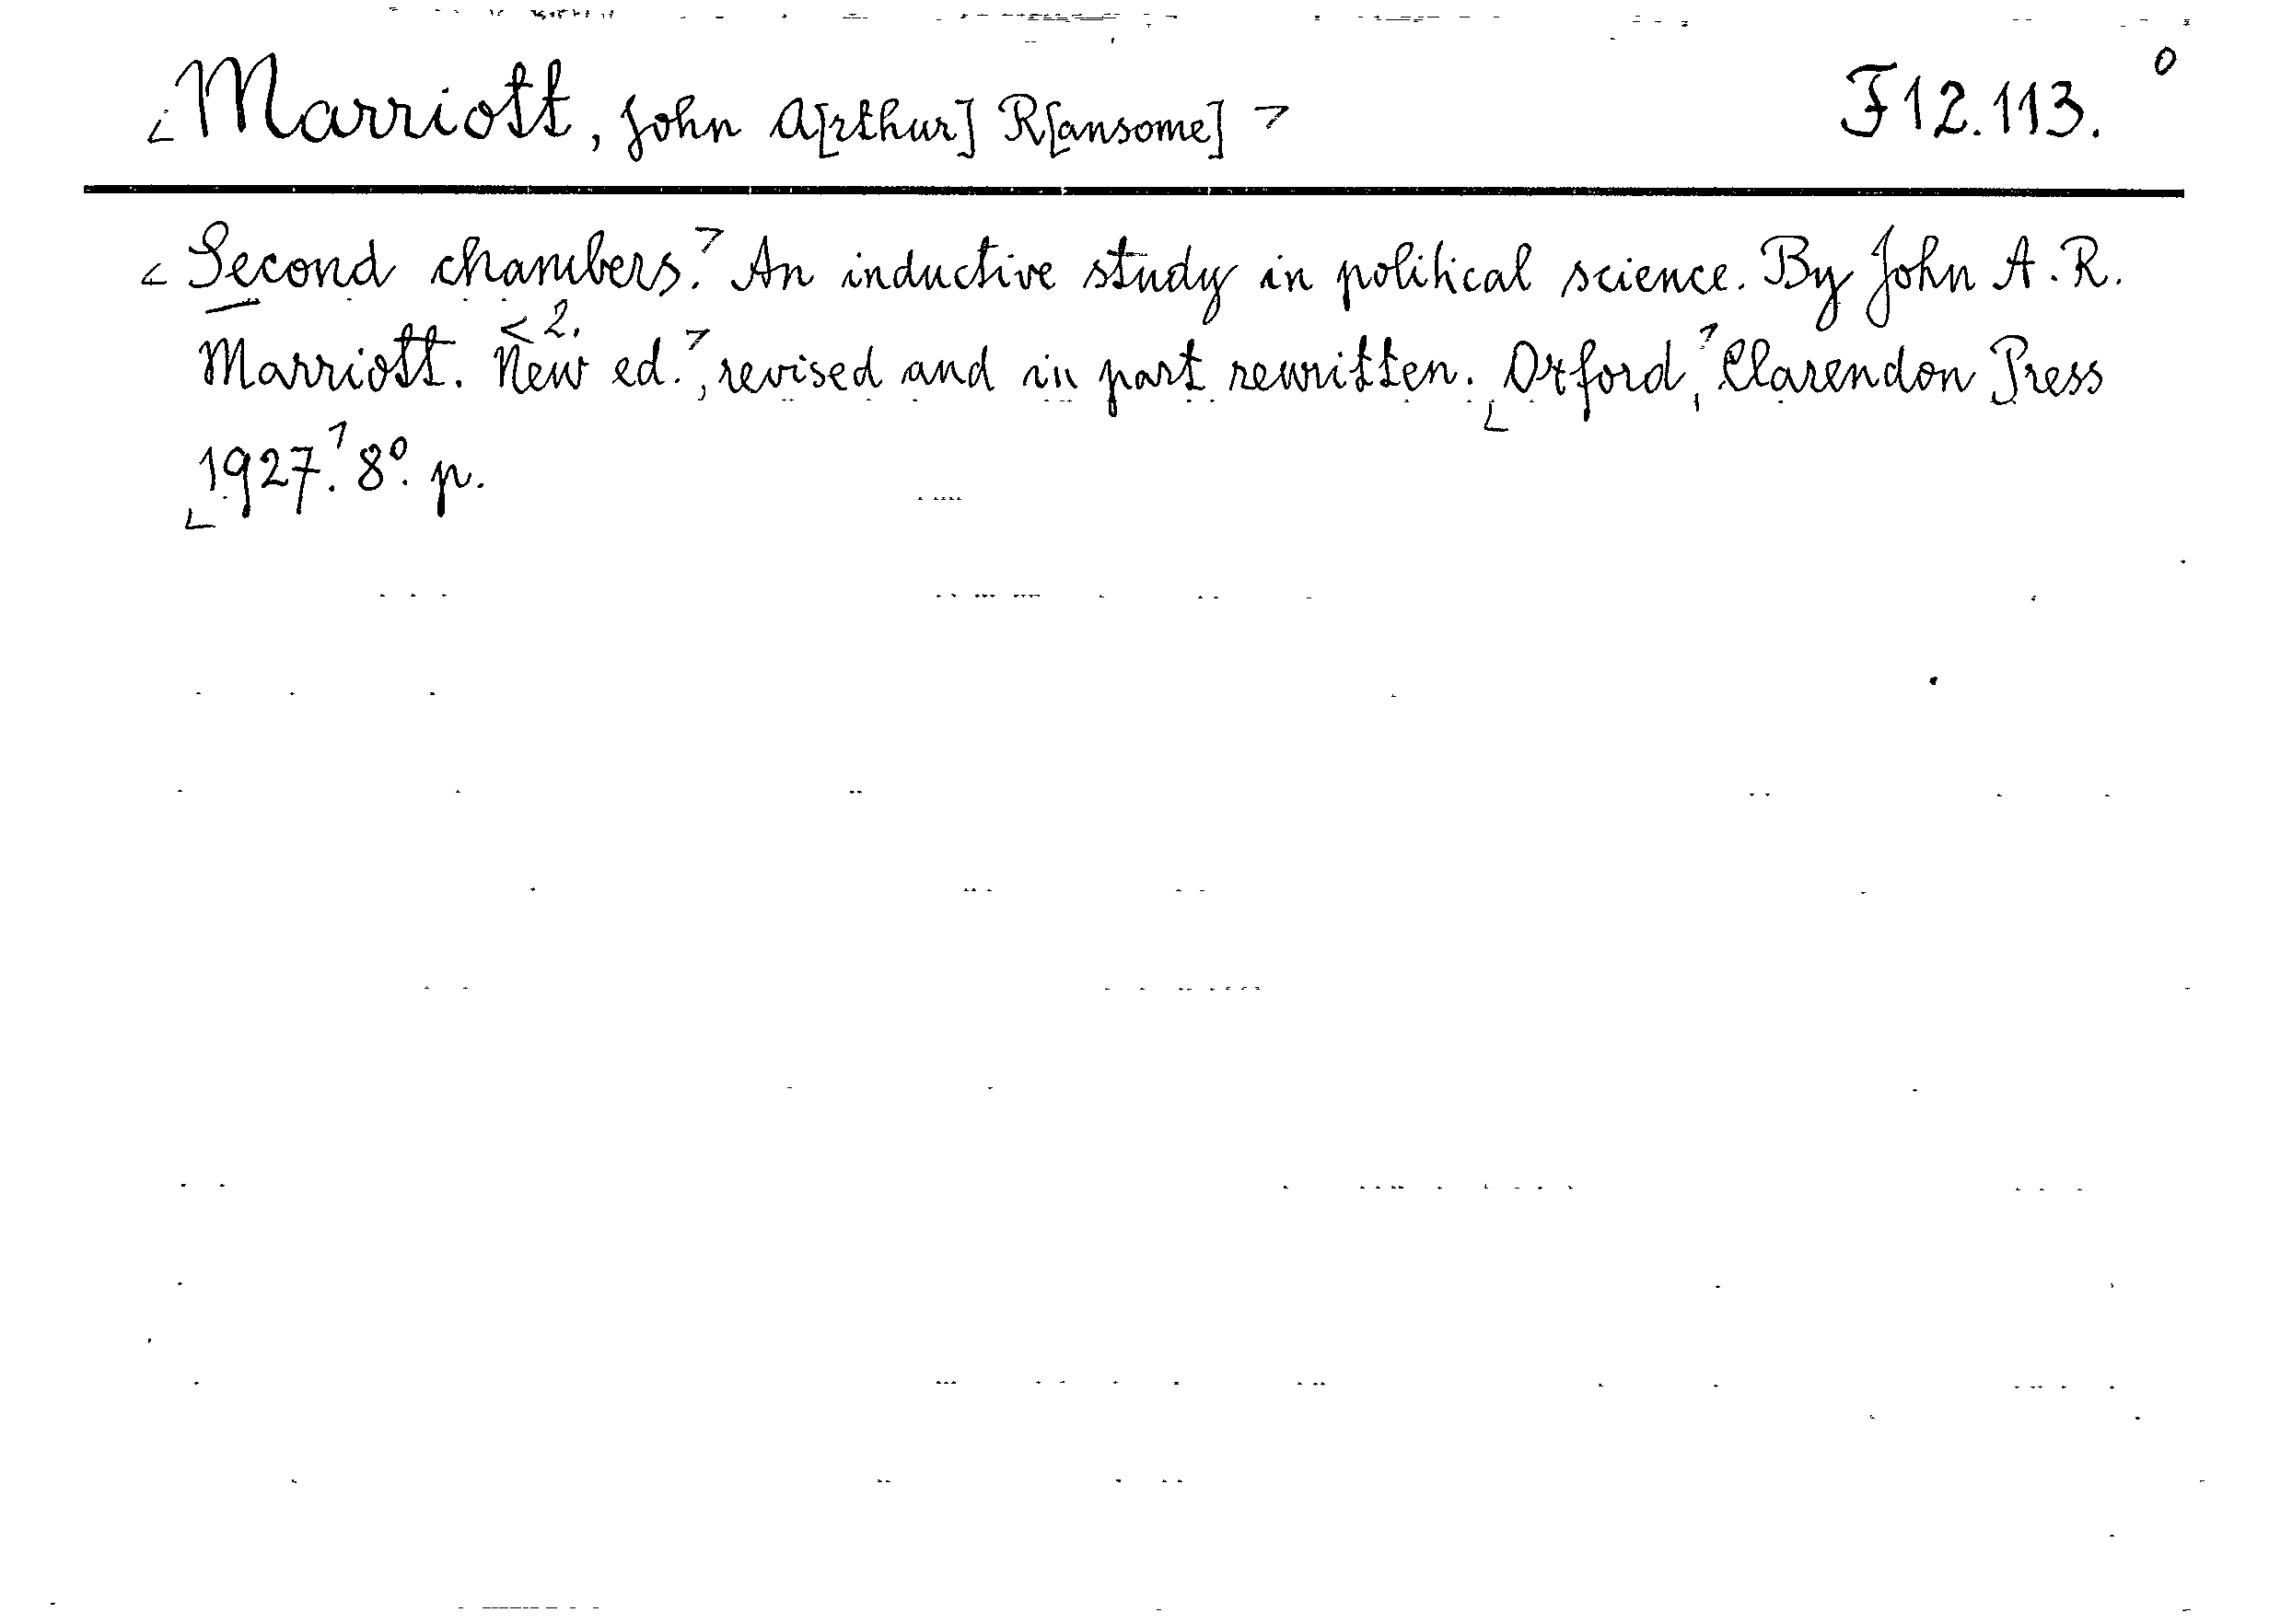 <Marriott, John A[rthur] R[ansome]> F12.113. o
<Second chambers.> An inductive study in political science. By John A. R.
<2.
Marriott. New ed.>, revised and in part rewritten. <Oxford,> Clarendon Press
<1927.> 8º. p.